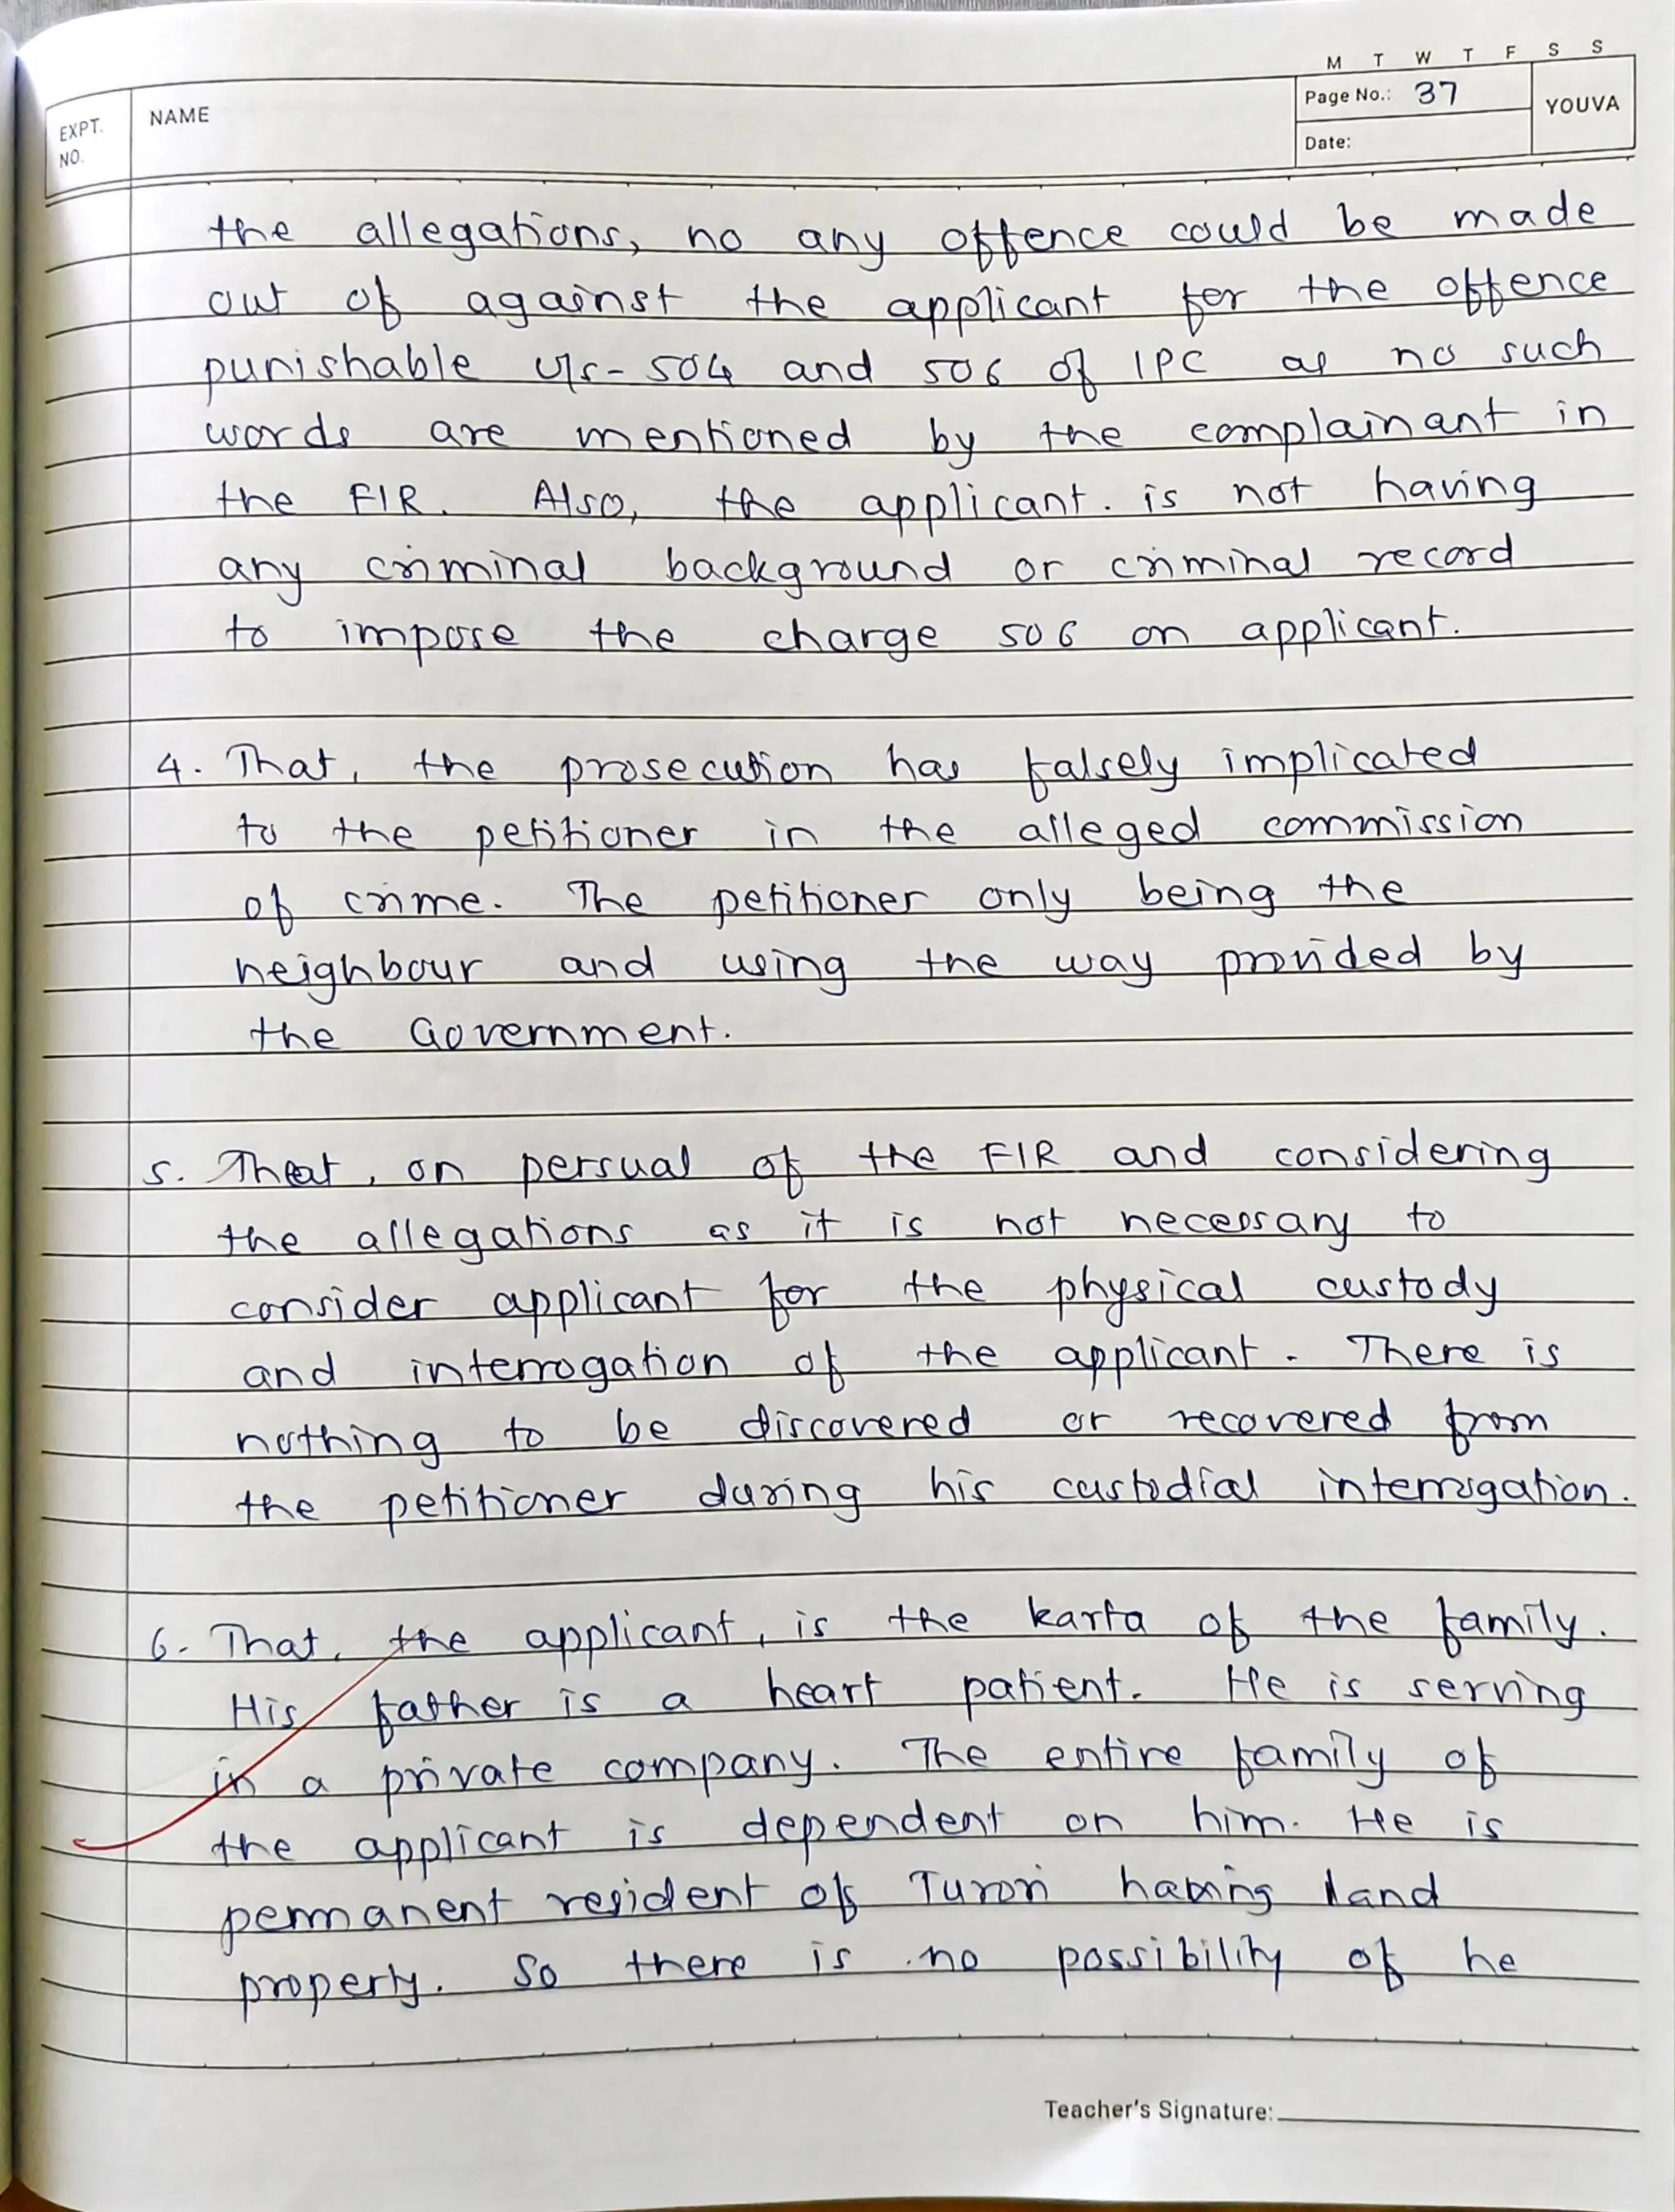 M T W T F S S
EXPT. NO.
NAME
Page No.: 37
YOUVA
Date:
the allegations, no any offence could be made
out of against the applicant for the offence
punishable u/s - 504 and 506 of IPC as no such
words are mentioned by the complainant in
the FIR. Also, the applicant. is not having
any criminal background or criminal record
to impose the charge 506 on applicant.
4. That, the prosecution has falsely implicated
to the petitioner in the alleged commission
of crime. The petitioner only being the
neighbour and using the way provided by
the Government.
5. That, on persual of the FIR and considering
the allegations as it is not necessary to
consider applicant for the physical custody
and interrogation of the applicant. There is
nothing to be discovered or recovered from
the petitioner during his custodial interrogation.
6. That, the applicant, is the karta of the family.
His father is a heart patient. He is serving
in a private company. The entire family of
the applicant is dependent on him. He is
permanent resident of Turori having land
property. So there is no possibility of he
Teacher's Signature: